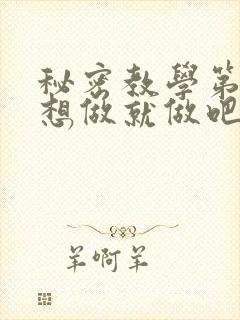 秘密教學第
想做就做吧
羊啊羊